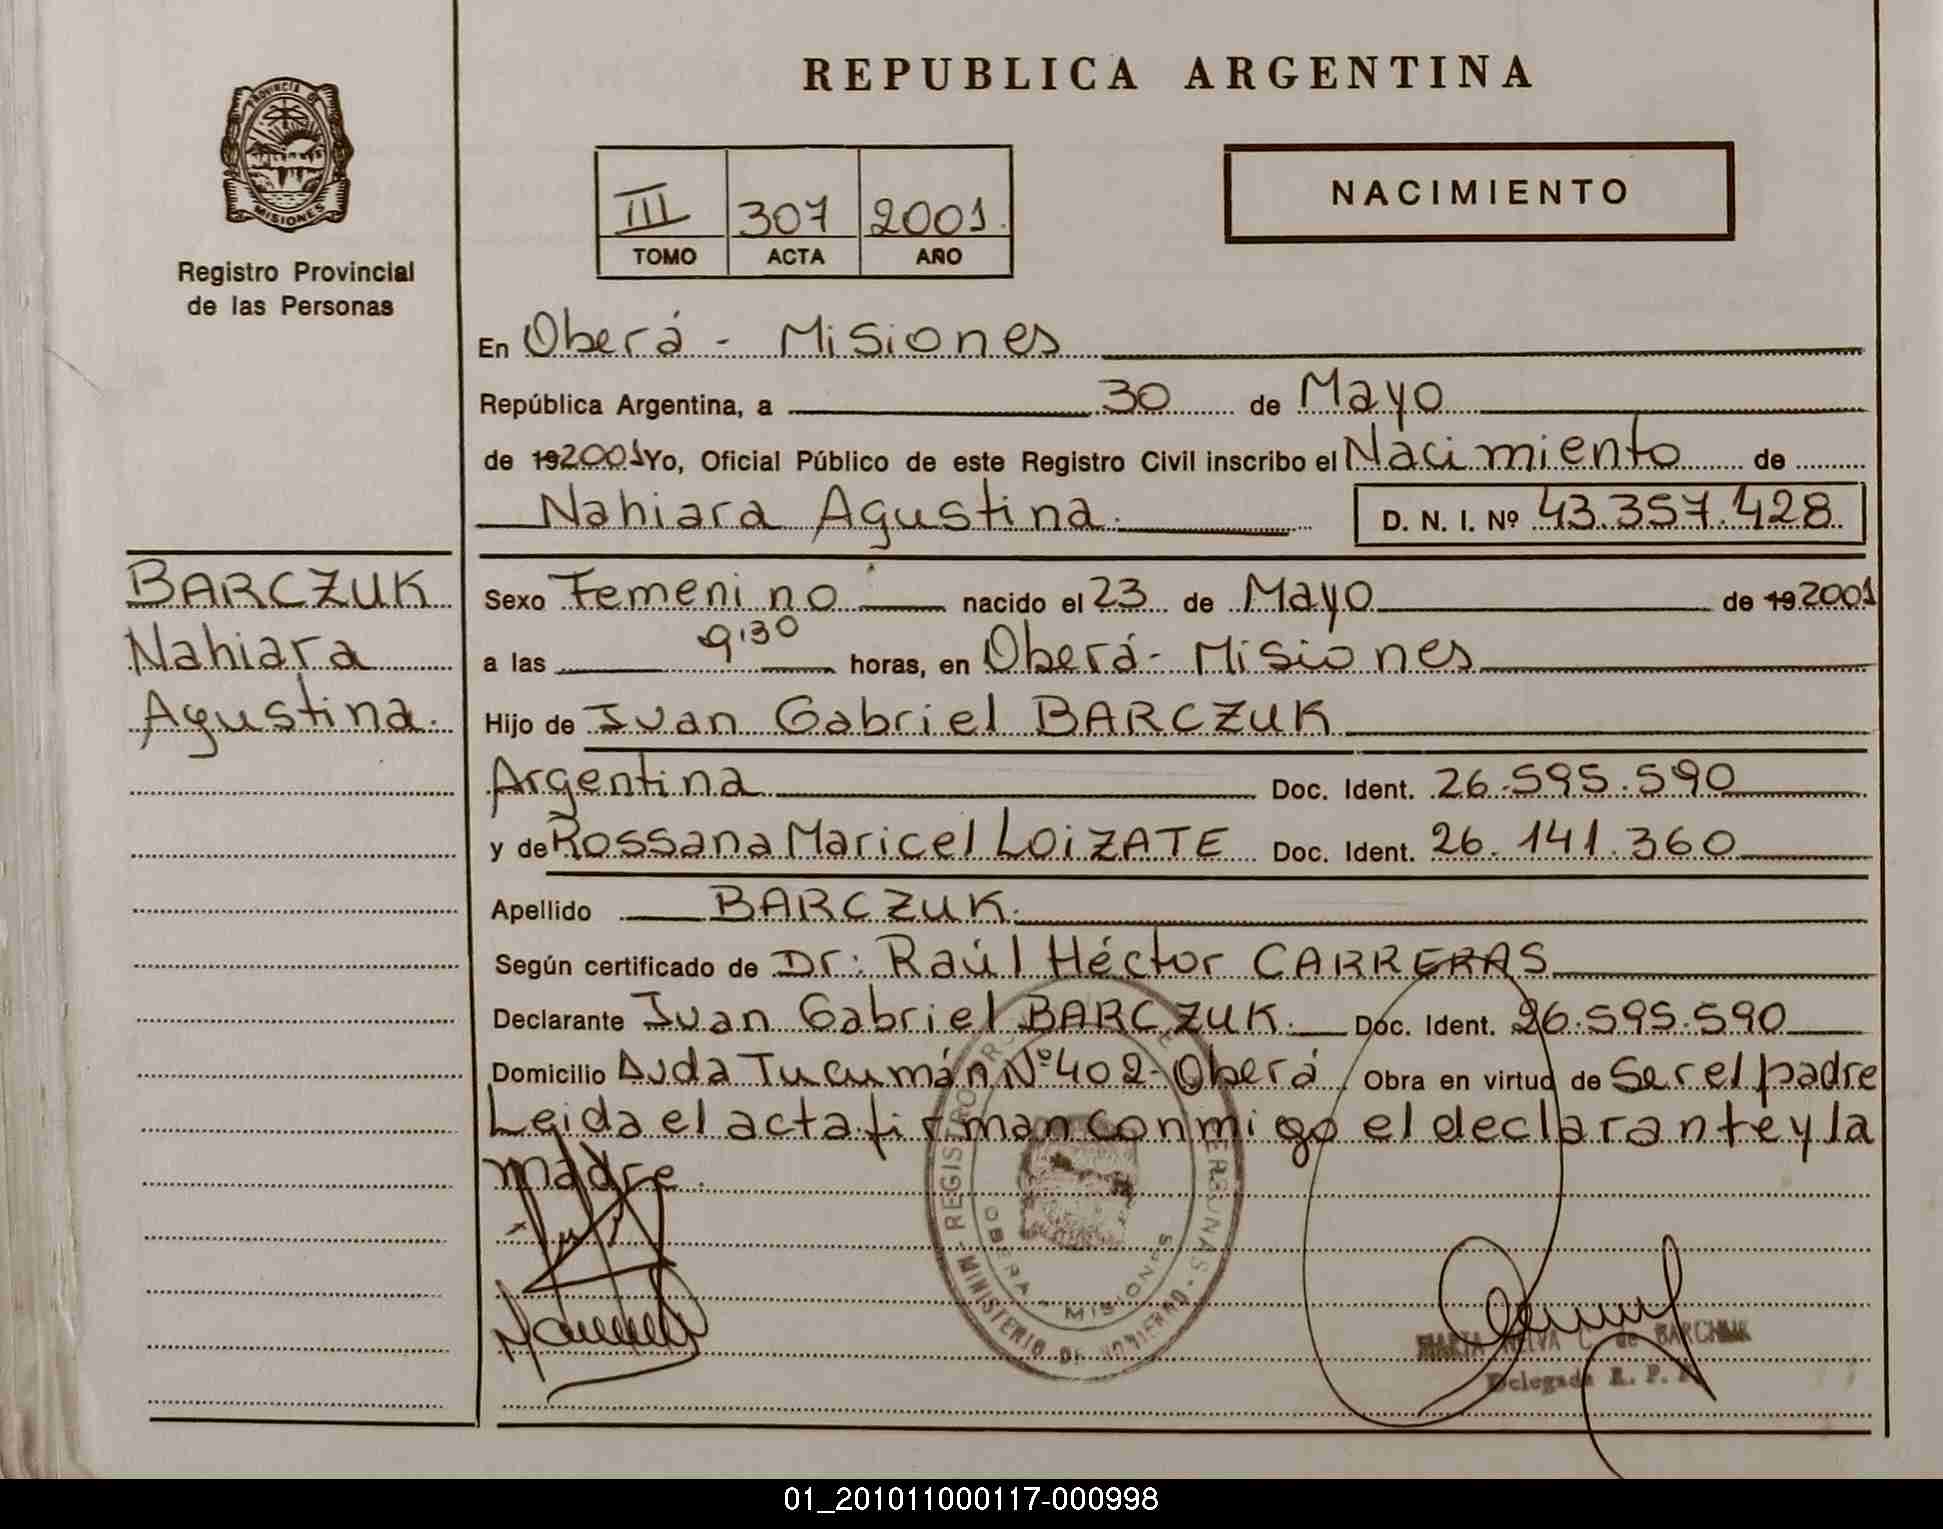 REPUBLICA ARGENTINA
PROVINCIA DE
MISIONES
Registro Provincial
de las Personas
III 307 2001
TOMO ACTA AÑO
NACIMIENTO
En Oberá - Misiones
República Argentina, a 30 de Mayo
de 19 2001 Yo, Oficial Público de este Registro Civil inscribo el Nacimiento de
Nahiara Agustina. D. N. I. Nº 43.357.428
BARCZUK
Nahiara
Agustina.
Sexo Femenino nacido el 23 de Mayo de 19 2001
a las 9:30 horas, en Oberá - Misiones
Hijo de Juan Gabriel BARCZUK
Argentina Doc. Ident. 26.595.590
y de Rossana Maricel LOiZATE Doc. Ident. 26.141.360
Apellido BARCZUK.
Según certificado de Dr: Raúl Héctor CARRERAS
Declarante Juan Gabriel BARCZUK. Doc. Ident. 26.595.590
Domicilio Avda Tucumán Nº 402 - Oberá Obra en virtud de Ser el padre
Leida el acta firman conmigo el declarante y la
madre.
OBERA - MISIONES
MINISTERIO DE GOBIERNO
C. de
Delegada R. P.
01_201011000117-000998